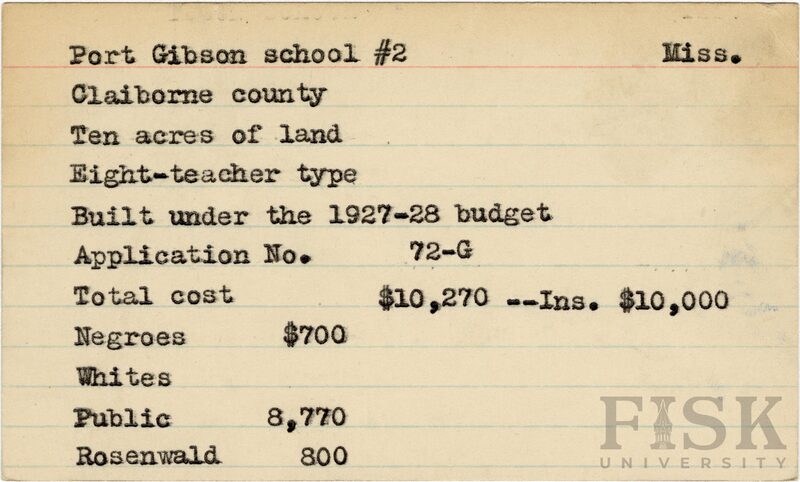 Port Gibson school #2 Miss.
Claiborne county
Ten acres of land
Eight-teacher type
Built under the 1927-28 budget
Application No. 72-G
Total cost $10,270 --Ins. $10,000
Negroes $700
Whites
Public 8,770
Rosenwald 800
FISK
UNIVERSITY